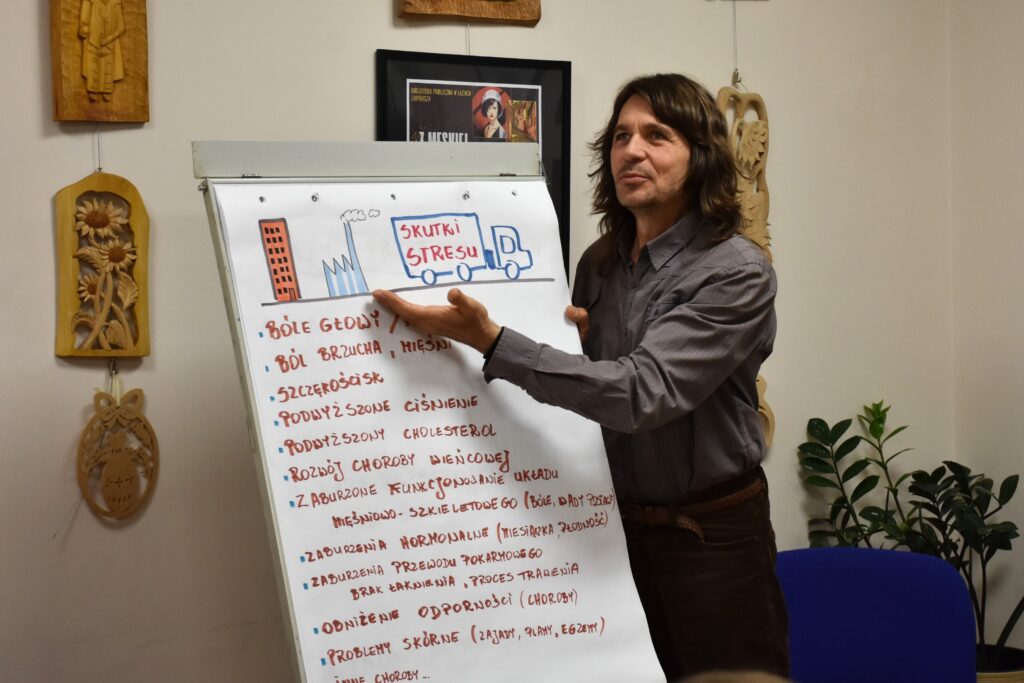 BIBLIOTEKA PUBLICZNA W ŁAZACH
ZAPRASZA
Z MĘSKIEJ
SKUTKI
STRESU
BÓLE GŁOWY /
BÓL BRZUCHA, MIĘŚNI
SZCZĘKOŚCISK
PODWYŻSZONE CIŚNIENIE
PODWYŻSZONY CHOLESTEROL
ROZWÓJ CHOROBY WIEŃCOWEJ
ZABURZONE FUNKCJONOWANIE UKŁADU
MIĘŚNIOWO-SZKIELETOWEGO (BÓLE, WADY POSTAWY)
ZABURZENIA HORMONALNE (MIESIĄCZKA, PŁODNOŚĆ)
ZABURZENIA PRZEWODU POKARMOWEGO
BRAK ŁAKNIENIA, PROCES TRAWIENIA
OBNIŻENIE ODPORNOŚCI (CHOROBY)
PROBLEMY SKÓRNE (ZAJADY, PLAMY, EGZEMY)
INNE CHOROBY...